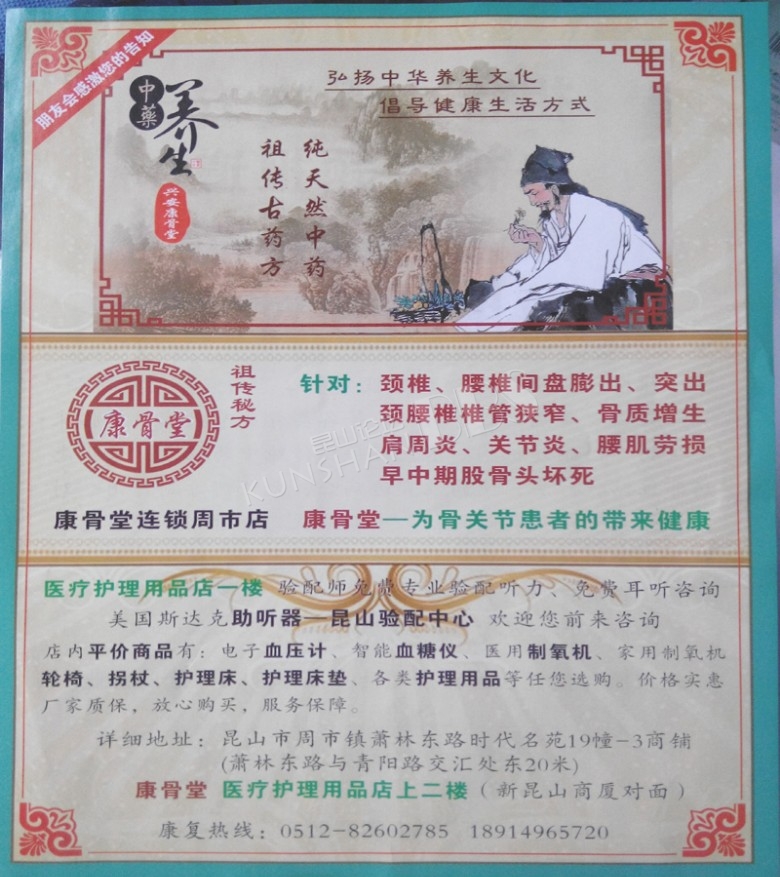 朋友会感激您的告知
中藥
养生
兴安康骨堂
弘扬中华养生文化
倡导健康生活方式
纯天然中药
祖传古药方
康骨堂
祖传秘方
针对：颈椎、腰椎间盘膨出、突出
颈腰椎椎管狭窄、骨质增生
肩周炎、关节炎、腰肌劳损
早中期股骨头坏死
昆山论坛
KUNSHA
康骨堂连锁周市店 康骨堂—为骨关节患者的带来健康
医疗护理用品店一楼 验配师免费专业验配听力、免费耳听咨询
美国斯达克助听器—昆山验配中心 欢迎您前来咨询
店内平价商品有：电子血压计、智能血糖仪、医用制氧机、家用制氧机
轮椅、拐杖、护理床、护理床垫、各类护理用品等任您选购。价格实惠
厂家质保，放心购买，服务保障。
详细地址：昆山市周市镇萧林东路时代名苑19幢-3商铺
(萧林东路与青阳路交汇处东20米)
康骨堂 医疗护理用品店上二楼（新昆山商厦对面）
康复热线：0512-82602785 18914965720